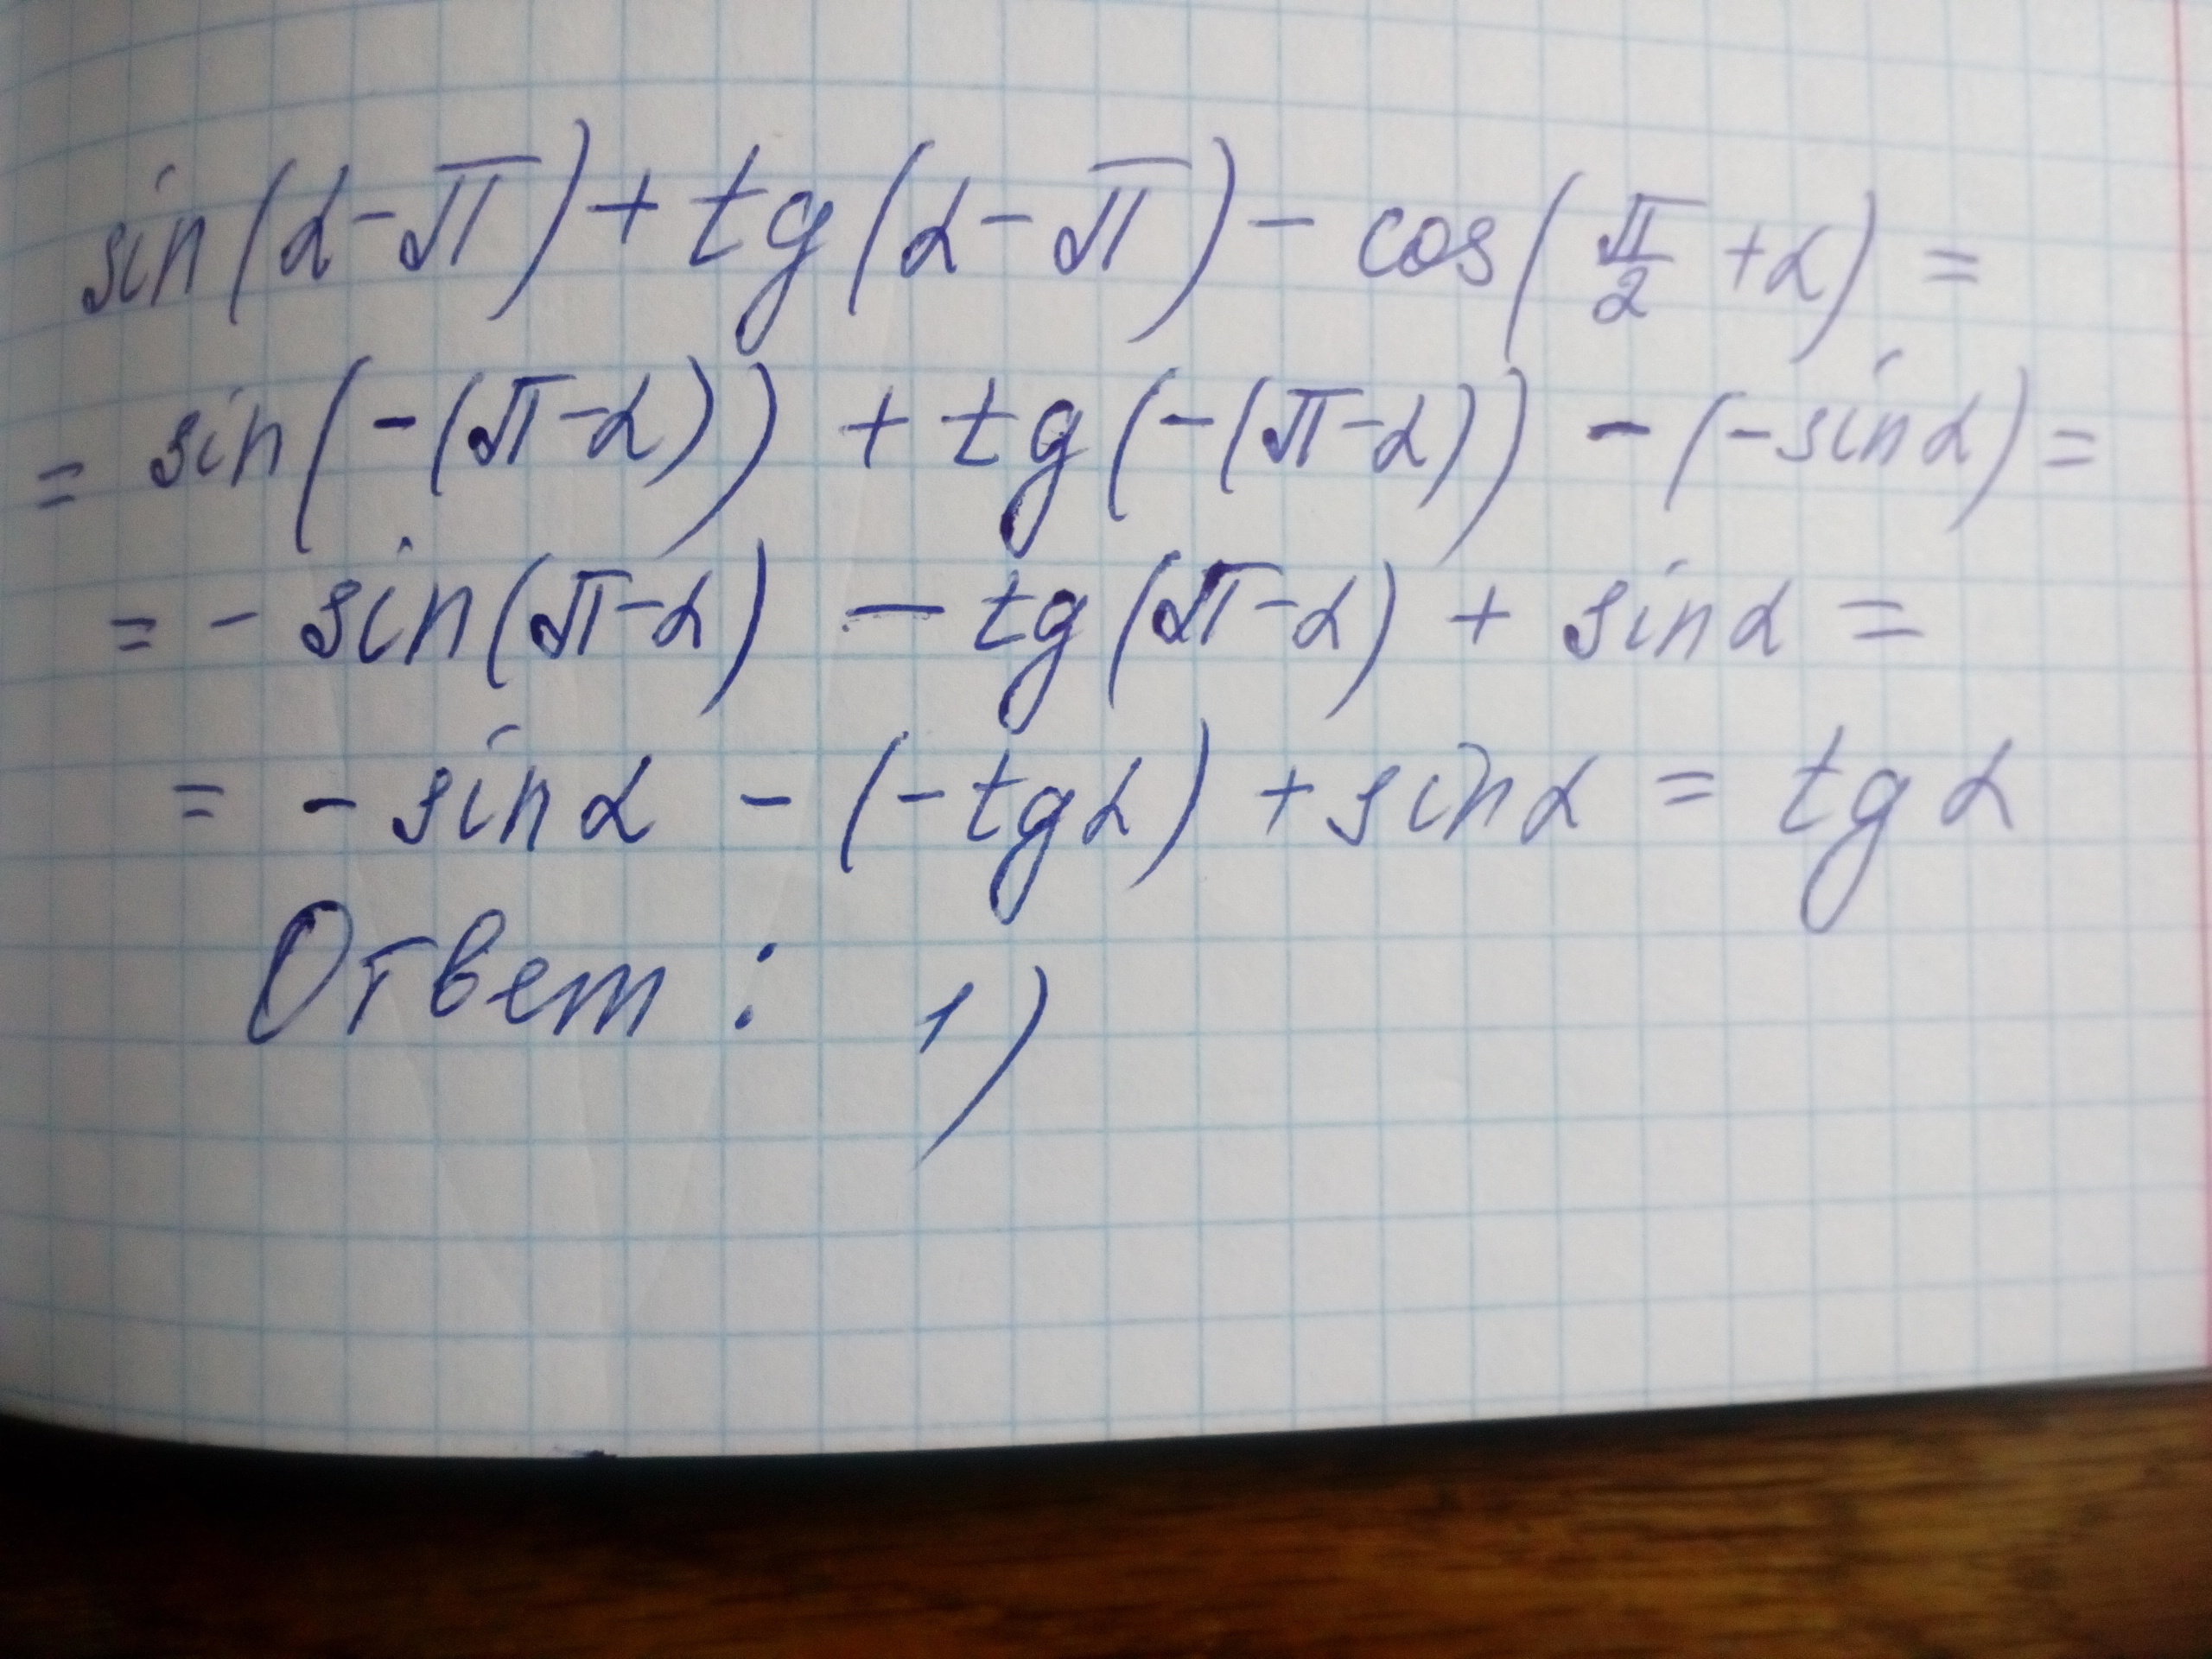 sin(α-π) + tg(α-π) - cos(π/2 + α) =
= sin(-(π-α)) + tg(-(π-α)) - (-sin α) =
= - sin(π-α) - tg(π-α) + sin α =
= - sin α - (-tg α) + sin α = tg α
Ответ: 1)